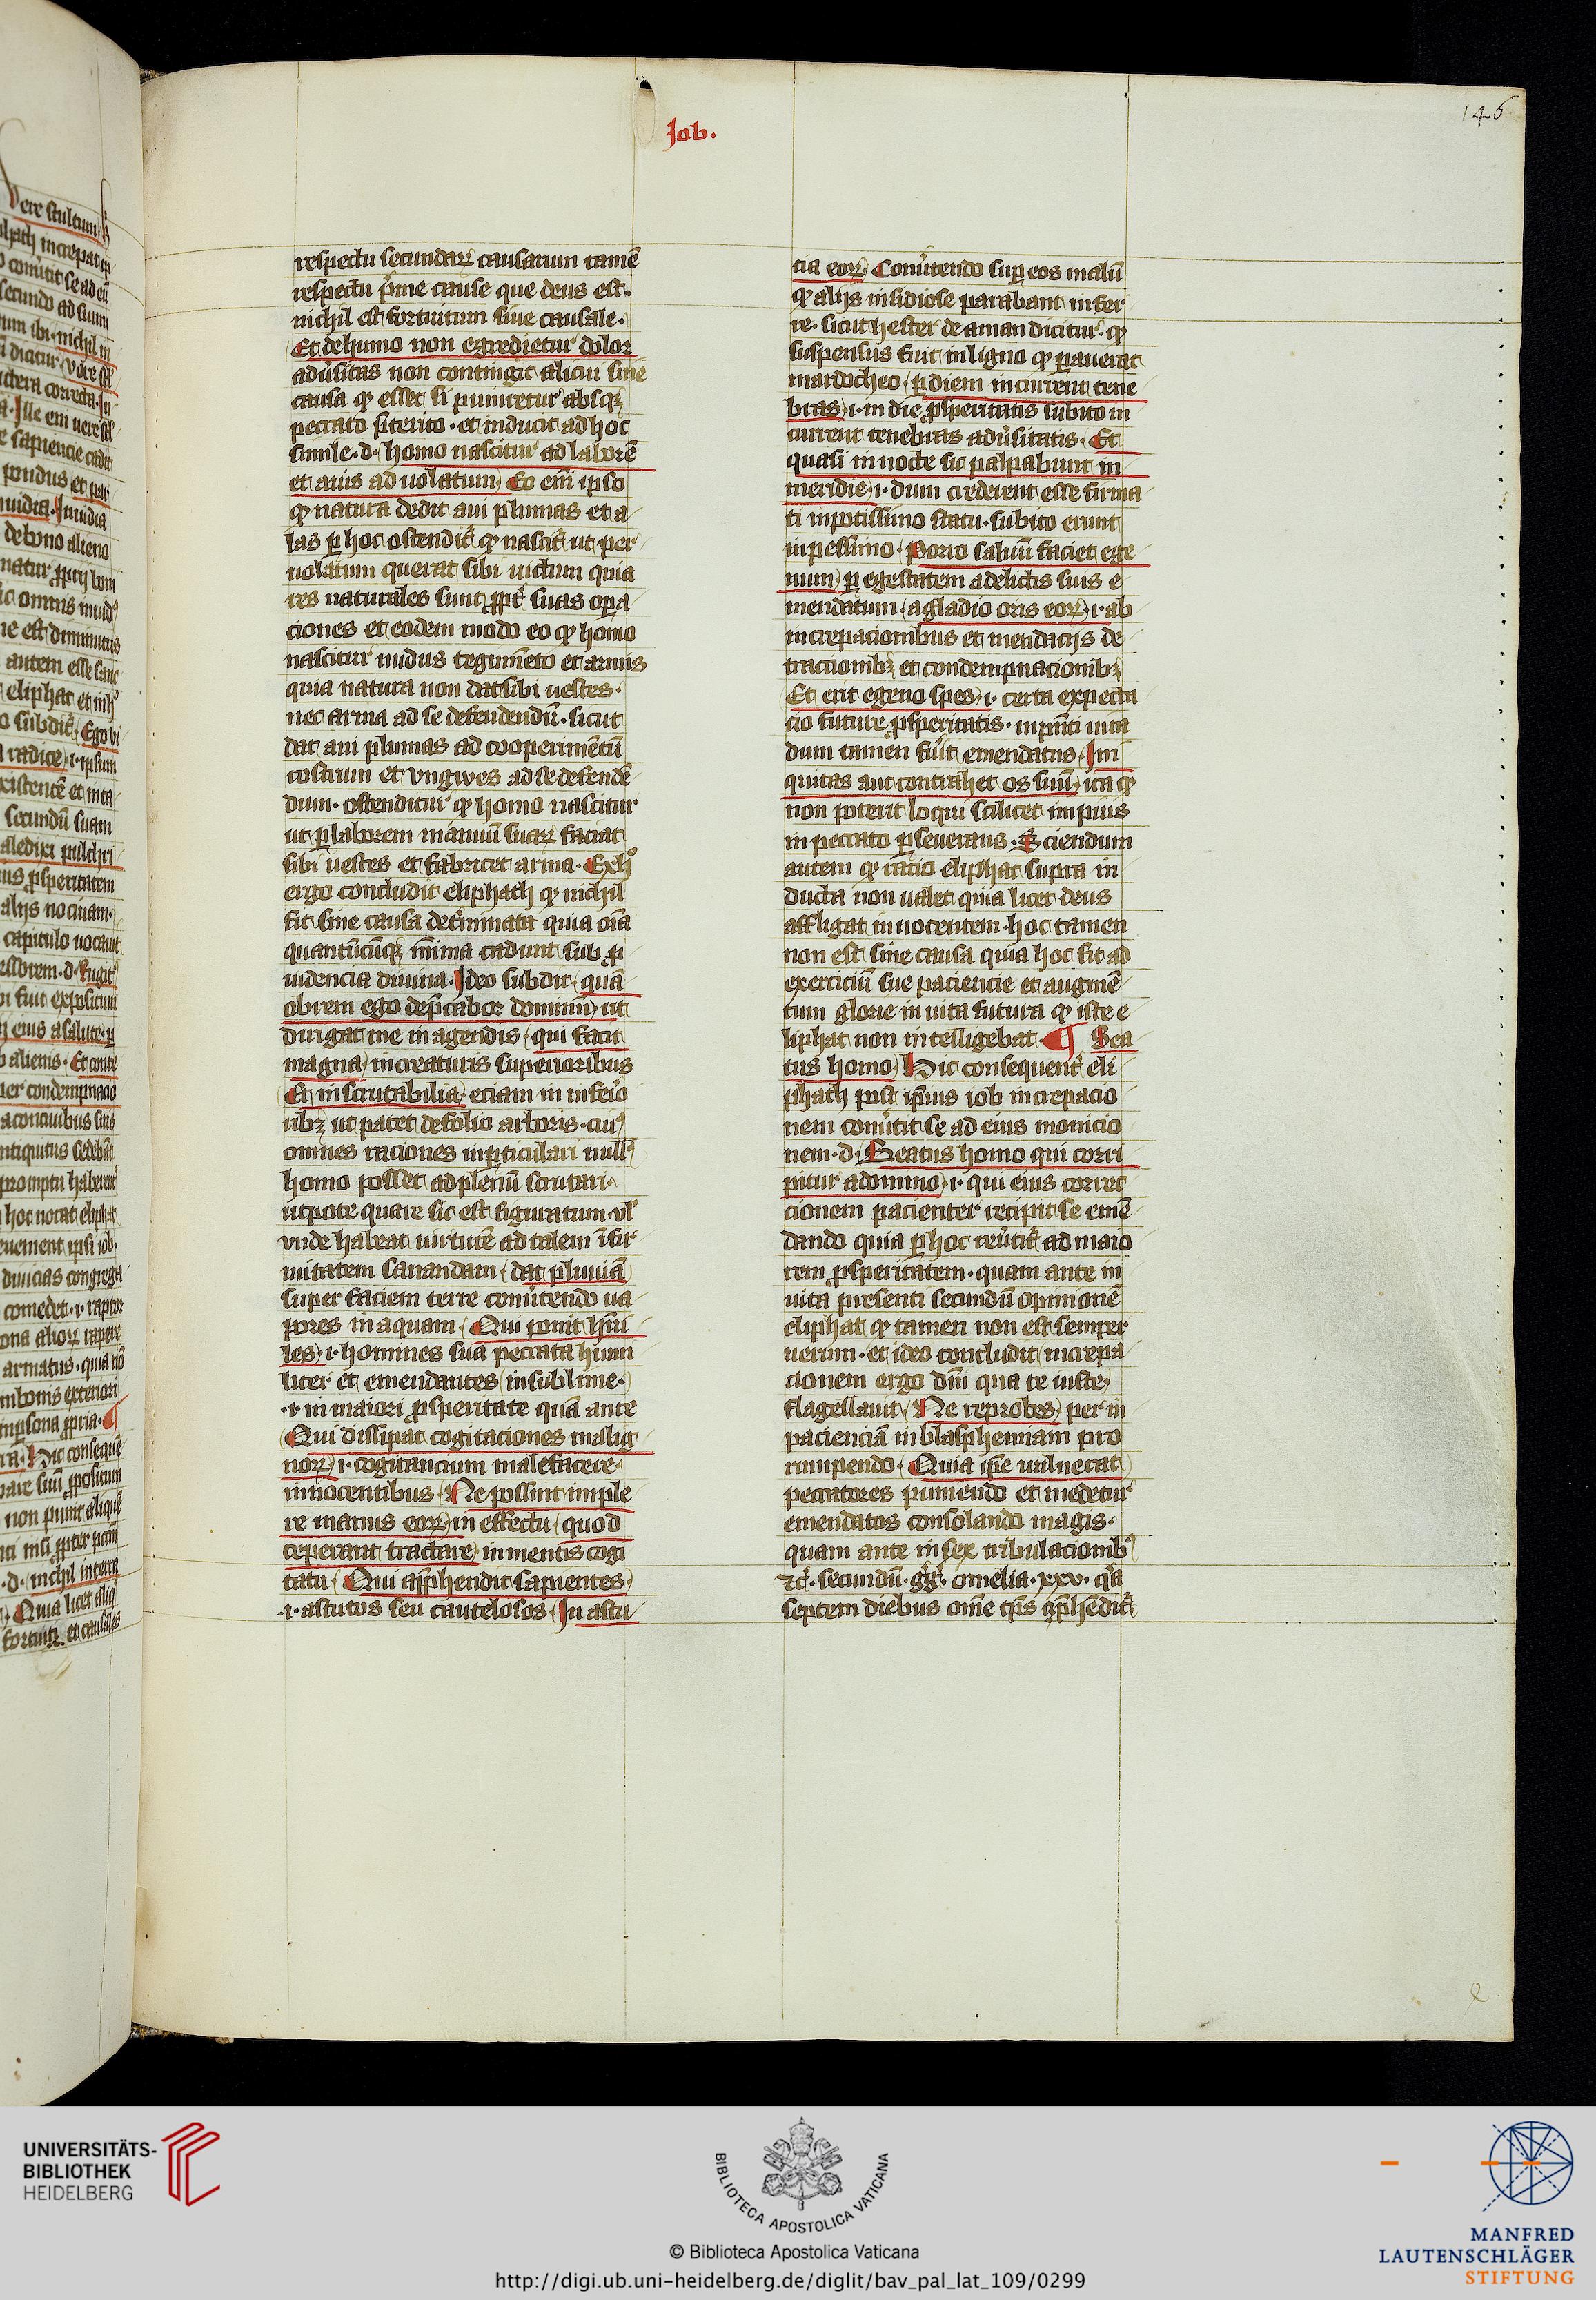 Job.
146
respectu secundarꝝ causarum tamē
respectu pͥme cause que deus est.
nichil est fortuitum siue causale.
Et de humo non egredietur dolor
adúsitas non contingit alicui sine
causa ꝙ esset si puniretur absqꝫ
peccato preterito · et inducit ad hoc
simile · d · homo nascitur ad laborē
et auis ad uolatum Eo em̄ ipso
ꝙ natura dedit aui plumas et a
las ꝑ hoc ostendit᷑ ꝙ nascit᷑ ut per
uolatum querat sibi uictum quia
res naturales sunt ꝓpt᷑ suas oꝑa
ciones et eodem modo eo ꝙ homo
nascitur nudus tegumēto et armis
quia natura non dat sibi uestes.
nec arma ad se defendendū · sicut
dat aui plumas ad cooperimentū
rostrum et vngwes ad se defendē
dum · ostenditur ꝙ homo nascitur
ut ꝑ laborem manuū suarꝝ faciat
sibi uestes et fabricet arma · Ex hͦ
ergo concludit eliphath ꝙ nichil
fit sine causa det̓minata quia oīa
quantūcūqꝫ mīnima cadunt sub ꝓ
uidencia diuina · Ideo subdit quā
obrem ego dep̄cabor dominū ut
dirigat me in agendis · qui facit
magna in creaturis superioribus
Et inscrutabilia eciam in inferio
ribꝫ ut patet de folio arboris · cuiꝰ
omnes raciones in ꝑticulari nullꝰ
homo posset ad plenū scrutari·
utpote quare sic est figuratum · vl̓
vnde habeat uirtutē ad talem īfir
mitatem sanandam · dat pluuiā
super faciem terre conu̓tendo ua
pores in aquam · Qui ponit hūi
les · i · homines sua peccata humi
liter et emendantes in sublime·
· i · in maiori ꝓsperitate quā ante
Qui dissipat cogitaciones malig
norꝝ · i · cogitancium malefacere·
innocentibus · Ne possint imple
re manus eorꝝ in effectu quod
ceperant tractare in mentis cogi
tatu · Qui app̄hendit sapientes
· i · astutos seu cautelosos · In astu
cia eorꝝ Conu̓tendo suꝑ eos malū
ꝙ alijs insidiose parabant infer
re · sicut hester de aman dicitur · ꝙ
suspensus fuit in ligno ꝙ ꝑauerat
mardocheo · ꝑ diem incurrent tene
bras · i · in die ꝓsperitatis subito in
current tenebras adu̓sitatis · Et
quasi in nocte sic palpabunt in
meridie · i · dum crederent esse firma
ti in potissimo statu · subito erunt
in pessimo · Porro saluū faciet ege
num ꝑ egestatem a delictis suis e
mendatum · a gladio oris eorꝝ · i · ab
increpacionibus et mendacijs de
traccionibꝫ et condempnacionibꝫ
Et erit egeno spes · i · certa expecta
cio future ꝓsperitatis · in pn̄ti uita
dum tamen fu̓it emendatus · Ini
quitas aut contrahet os suū ita ꝙ
non poterit loqui scilicet impius
in peccato ꝑseuerans · Sciendum
autem ꝙ racio eliphat supra in
ducta non ualet quia licet deus
affligat innocentem · hoc tamen
non est sine causa quia hoc fit ad
exerciciū sue paciencie et augmē
tum glorie in uita futura ꝙ iste e
liphat non intelligebat · ¶ Bea
tus homo Hic consequent᷑ eli
phath post ip̄ius iob increpacio
nem conu̓tit se ad eius monicio
nem · d · Beatus homo qui corri
pitur a domino · i · qui eius correc
cionem pacienter recipit se emē
dando quia ꝑ hoc reu̓tit᷑ ad maio
rem ꝓsperitatem · quam ante in
uita presenti secundū opinionē
eliphat ꝙ tamen non est semper
uerum · et ideo concludit increpa
cionem ergo dn̄i qua te iuste
flagellauit · Ne reprobes per in
pacienciā in blasphemiam pro
rumpendo · Quia ip̄e uulnerat
peccatores puniendo et medetur
emendatos consolando magis·
quam ante in sex tribulacionibꝰ
⁊c̄ · secundū · gͥg᷑ · omelia · xxv · qͥa
septem diebus om̄e tp̄s ꝯp̄hendit᷑
UNIVERSITÄTS-
BIBLIOTHEK
HEIDELBERG
BIBLIOTECA APOSTOLICA VATICANA
© Biblioteca Apostolica Vaticana
http://digi.ub.uni-heidelberg.de/diglit/bav_pal_lat_109/0299
MANFRED
LAUTENSCHLÄGER
STIFTUNG